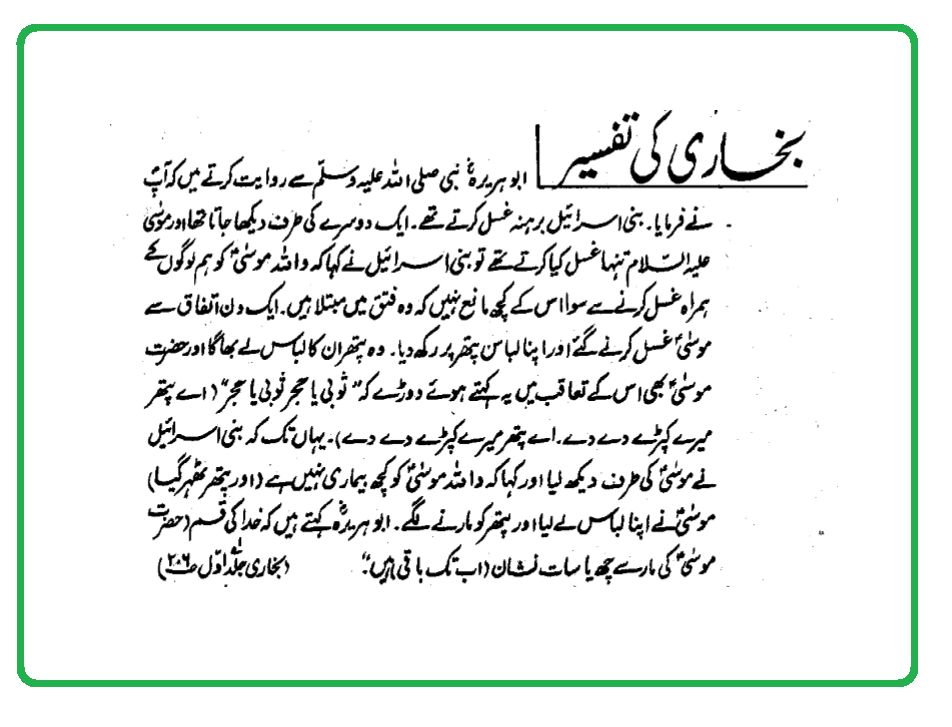 بخاری کی تفسیر
ابو ہریرہؓ نبی صلی اللہ علیہ وسلم سے روایت کرتے ہیں کہ آپؐ
نے فرمایا۔ بنی اسرائیل برہنہ غسل کرتے تھے۔ ایک دوسرے کی طرف دیکھا جاتا تھا اور موسٰی
علیہ السلام تنہا غسل کیا کرتے تھے تو بنی اسرائیل نے کہا کہ واللہ موسٰیؑ کو ہم لوگوں کے
ہمراہ غسل کرنے سے سوا اس کے کچھ مانع نہیں کہ وہ فتق میں مبتلا ہیں۔ ایک دن اتفاق سے
موسٰیؑ غسل کرنے گئے اور اپنا لباس پتھر پر رکھ دیا۔ وہ پتھر ان کا لباس لے بھاگا اور حضرت
موسٰیؑ بھی اس کے تعاقب میں یہ کہتے ہوئے دوڑے کہ "ثوبی یا حجر ثوبی یا حجر" (اے پتھر
میرے کپڑے دے دے۔ اے پتھر میرے کپڑے دے دے)۔ یہاں تک کہ بنی اسرائیل
نے موسٰیؑ کی طرف دیکھ لیا اور کہا کہ واللہ موسٰیؑ کو کچھ بیماری نہیں ہے (اور پتھر ٹھہر گیا)
موسٰیؑ نے اپنا لباس لے لیا اور پتھر کو مارنے لگے۔ ابو ہریرہؓ کہتے ہیں کہ خدا کی قسم (حضرت
موسٰیؑ کی مار سے چھ یا سات نشان (اب تک باقی ہیں۔" (بخاری جلد اوّل ص۲۰۶)